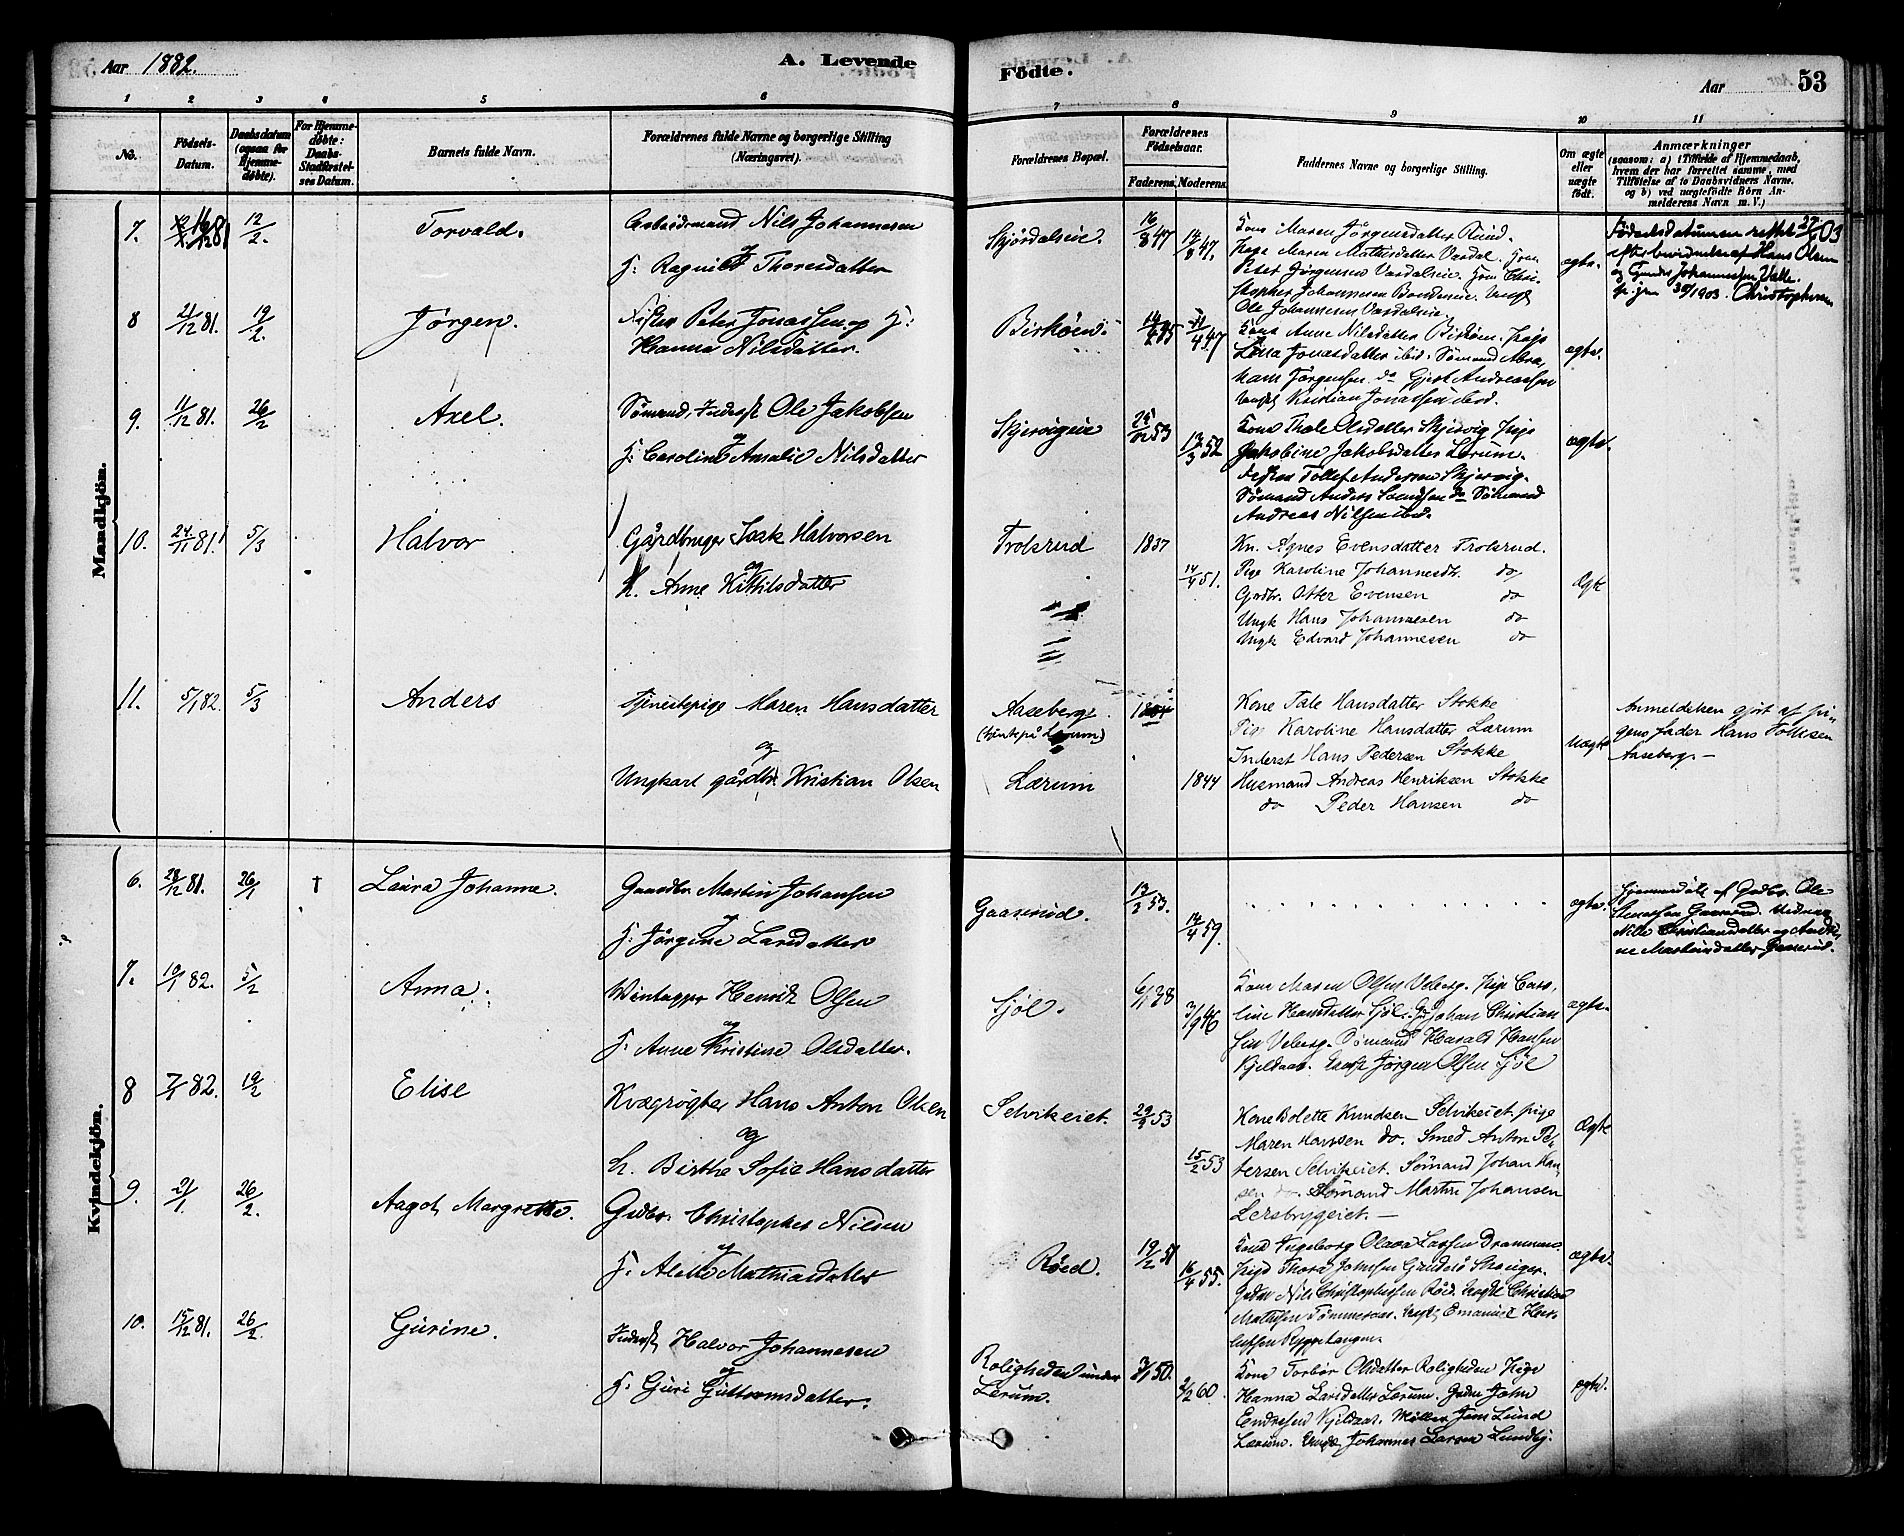 Aar 1882.
A. Levende
Födte.
Aar
53
1 2 3 4 5 6 7 8 9 10 11
No.
Födsels-
Datum.
Daabsdatum
(ogsaa for
Hjemme-
døbte).
For Hjemme-
døbte:
Daabs-
Stadfæstel-
ses Datum.
Barnets fulde Navn.
Forældrenes fulde Navne og borgerlige Stilling
(Næringsvei).
Forældrenes Bopæl.
Forældrenes
Födselsaar.
Faderens. Moderens.
Faddernes Navne og borgerlige Stilling.
Om ægte
eller
uægte
født.
Anmærkninger
(saasom: a) i Tilfælde af Hjemmedaab,
hvem der har forrettet samme, med
Tilföielse af to Daabsvidners Navne,
og b) ved uægtefödte Börn An-
melderens Navn m. V.)
Mandkjön.
7.
12/2.
Torvald.
Arbeidsmand Nils Johannesen
og
H: Ragnild Thoresdatter
Skjördalseie.
16/8 47
14/8 47.
Kone Maren Jörgensdatter Rund.
Pige Maren Mathisdatter Vardal.
Peter Jörgensen Vardalseie.
Christopher Johannesen Ungk
Ole Johannesen Vardalseie.
ægte.
Födselsdatumen rettet 03
efter bevidnelse af Hans Olsen
og Johannessen Valle
1903. Christophersen
8
21/12 81.
19/2.
Jörgen.
Fisker Peter Jonassen og H:
Hanna Nilsdatter.
Birköen
Kone Anne Nilsdatter Birköen. Pige
Lina Jonasdatter ibid. Sömand Abra
ham Jörgensen do Gjert Andreassen
Ungk. Kristian Jonassen ibid.
ægte.
9.
11/12 81.
26/2
Axel.
Sömand, Inderst Ole Jakobsen
og
H: Caroline Amalie Nilsdatter
Skjervigeie
53
13/3 52
Kone Thale Olsdatter Skjervig Pige
Jakobine Jakobsdatter Lærum.
Fisker Tollef Andersen Skjervig.
Sömand Anders do Sömand
Andreas Nilsen ibid.
ægte.
10.
24/11 81.
5/3
Halvor
Gårdbruger Isak Halvorsen
og
h. Anne Kittilsdatter
Trolsrud
1837
14/4 51.
Kn. Agnes Evensdatter Trolsrud.
Pige Karoline Johannesdtr. do
Gjrdbr. Otter Evensen do
Ungk Hans Johannesen do
Ungk Edvard Johannesen do
Ægte
11.
5/1 82.
5/3
Anders
Tjenestepige Maren Hansdatter
og
Ungkarl gårdbr. Kristian Olsen
Aaseberg.
Lærum
1844
Kone Tale Hansdatter Stokke
Pige Karoline Hansdatter Lærum
Inderst Hans Pedersen Stokke
Husmand Andreas Henriksen Stokke
do Peder Hansen do
Uægte
Anmeldelsen gjort af pi-
gens fader Hans Tollefsen
Aaseberg. —
Kvindekjön.
6.
28/12 81.
26/1
†
Laura Johanne.
Gaardbr. Martin Johansen
og
H: Jörgine Larsdatter
Gaaserød.
13/2 53.
14/4 59.
ægte.
Hjemmedöbt af Grdbr. Ole
Gaaserød. Vidner
Nille Christiansdatter og
Martinsdatter Gaaserød.
7.
10/1 82.
5/2
Anna.
Vintapper Henrik Olsen
og
H: Anne Kristine Olsdatter.
Fjöl.
6/1 38
3/9 46
Kone Maren Olsen Veberg. Pige Caro-
line Hansdatter Fjöl. Johan Christian
sen Veberg. Sömand Harald Hansen
Kjeldaas. Ungk Jörgen Olsen Fjöl
ægte.
8
7/1 82.
19/2
Elise
Kvægrøgter Hans Anton Olsen
og
h. Birthe Sofie Hansdatter
Selvikeiet.
53
15/2 53
Kone Bolette Knudsen Selvikeiet. pige
Maren Hanssen do. Smed Anton Pe-
tersen Selvikeiet. Sömand Johan Han-
sen do Sömand Martin Johansen
Lersbrygeiet. —
Ægte
9.
21/1.
26/2.
Aagot Margrethe.
Grdbr. Christopher Nilsen
og
H: Alette Mathiasdatter
Røed.
19/2 51
16/4 55.
Kone Ingeborg Olava Larsen Drammen.
Pige Thora
Grdbr Nils Christophersen Röed. Ungk Christian
Mathisen Ungk. Emanuel
ægte.
10.
15/12 81.
26/2.
Gurine.
Inderst Halvor Johannesen
og
H: Guri Guttormsdatter.
Roligheden under
Lærum.
3/1 50.
2/2 60.
Kone Torbör Olsdatter Roligheden Pige
Hanna Larsdatter Lærum. Grdbr John
Endresen Kjeldaas. Møller Jens Lund
Lærum. Ungk. Johannes Larsen Lundby.
ægte.